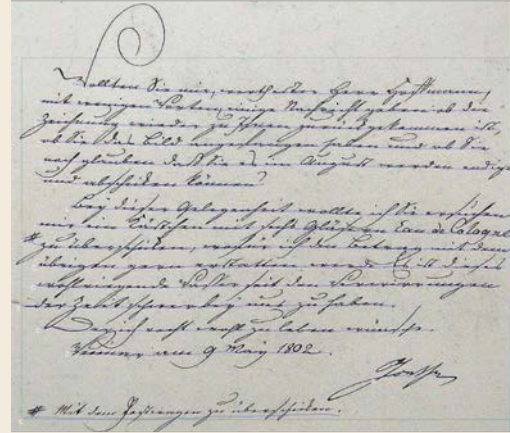 Wollten Sie mir, werthester Herr Hoffmann,
mit wenigen Worten einige Nachricht geben ob die
Zeichnung wieder zu Ihnen zurückgekommen ist,
ob Sie das Bild angefangen haben und ob Sie
noch glauben daß Sie es im August werden endigen
und abschicken können?
Bey dieser Gelegenheit wollte ich Sie ersuchen
mir ein Kästchen mit sechs Gläsern Eau de Cologne
# zu überschicken, wofür ich den Betrag mit dem
übrigen gern erstatten werde. Es ist dieses
wohlriechende Wasser seit den Verwirrungen
der Zeit schwer bey uns zu haben.
Der ich recht wohl zu leben wünsche.
Weimar am 9 May 1802.
Goethe
# Mit dem Postwagen zu überschicken.